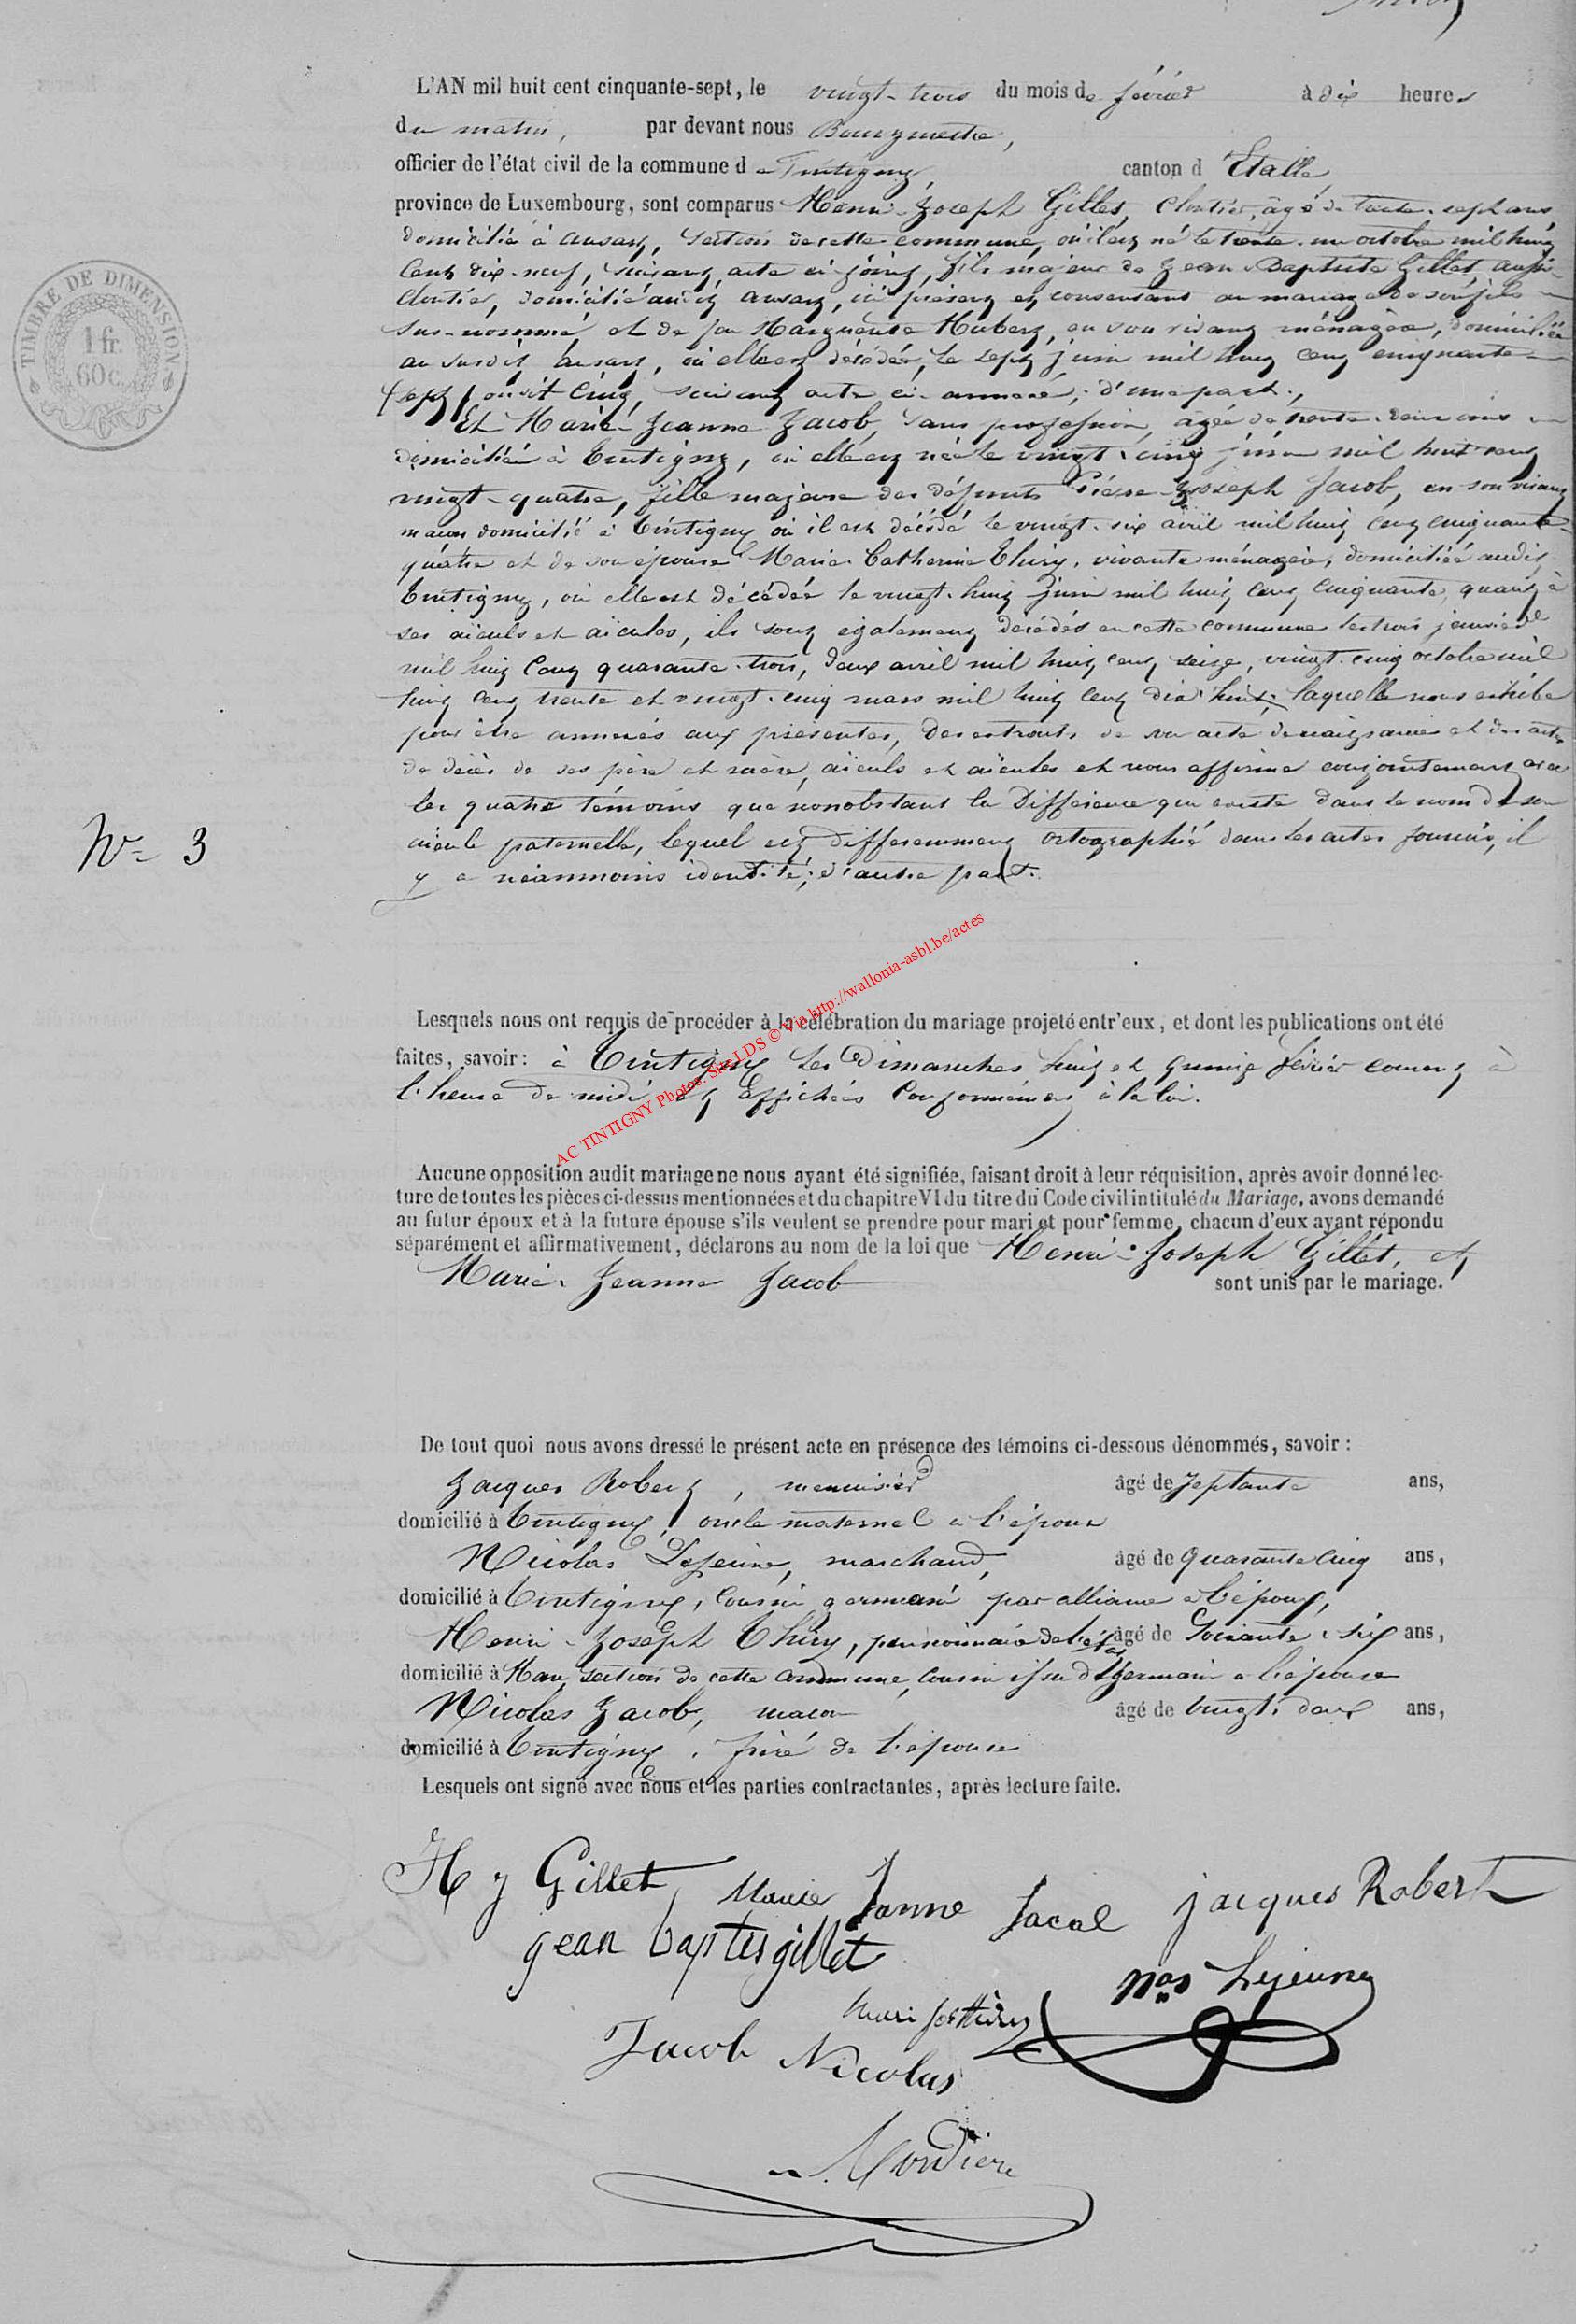 L'AN mil huit cent cinquante-sept, le vingt-trois du mois de février à dix heures
du matin, par devant nous Bourgmestre,
officier de l'état civil de la commune de Tintigny, canton d Etalle
province de Luxembourg, sont comparus Henri-Joseph Gillet, Cloutier, âgé de trente-sept ans
domicilié à ansart, section de cette commune, où il est né le trente-un octobre mil huit
Cent dix-neuf, suivant acte ci-joint, fils majeur de Jean-Baptiste Gillet, aussi
Cloutier, domicilié audit ansart, ici présent et consentant au mariage de son fils
sus-nommé, et de feu Marguerite Hubert, en son vivant ménagère, domiciliée
au susdit ansart, où elle est décédée, le sept juin mil huit cent cinquante
(sept) ou dit Cinq, suivant acte ci-annexé; d'une part.,
Et Marie-Jeanne Jacob, sans profession, âgée de trente-deux ans
domiciliée à Tintigny, où elle est née le vingt-cinq juin mil huit cent
vingt-quatre, fille majeure des défunts Pierre-Joseph Jacob, en son vivant
maçon domicilié à Tintigny où il est décédé le vingt-six avril mil huit cent cinquante
quatre et de son épouse Marie-Catherine Thiry, vivante ménagère, domiciliée audit
Tintigny, où elle est décédée le vingt-huit juin mil huit cent cinquante, quant à
ses aïeuls et aïeules, ils sont également décédés en cette commune les trois janvier
mil huit cent quarante-trois, deux avril mil huit cent seize, vingt-cinq octobre mil
huit cent trente et vingt-cinq mars mil huit cent dix-huit; laquelle nous exhibe
pour être annexés aux présentes, des extraits de son acte de naissance et des actes
de décès de ses père et mère, aïeuls et aïeules et nous affirme conjointement avec
les quatre témoins que nonobstant la Différence qui existe dans le nom de son
aïeule paternelle, lequel est differemment ortographié dans les actes fournis, il
y a néanmoins identité; d'autre part.
N° 3
Lesquels nous ont requis de procéder à la célébration du mariage projeté entr'eux, et dont les publications ont été
faites, savoir: à Tintigny les Dimanches huit et quinze février courant à
l'heure de midi et Affichées Conformément à la loi.
Aucune opposition audit mariage ne nous ayant été signifiée, faisant droit à leur réquisition, après avoir donné lec-
ture de toutes les pièces ci-dessus mentionnées et du chapitre VI du titre du Code civil intitulé du Mariage, avons demandé
au futur époux et à la future épouse s'ils veulent se prendre pour mari et pour femme, chacun d'eux ayant répondu
séparément et affirmativement, déclarons au nom de la loi que Henri-Joseph Gillet, et
Marie-Jeanne Jacob sont unis par le mariage.
De tout quoi nous avons dressé le présent acte en présence des témoins ci-dessous dénommés, savoir:
Jacques Robert, menuisier âgé de septante ans,
domicilié à Tintigny, oncle maternel a l'époux
Nicolas Lejeune, marchand, âgé de quarante cinq ans,
domicilié à Tintigny, Cousin germain par alliance a l'époux,
Henri-Joseph Thiry, pensionnaire de l'état âgé de soixante-six ans,
domicilié à Han, section de cette commune, Cousin issu de germain a l'épouse
Nicolas Jacob, macon âgé de vingt-deux ans,
domicilié à Tintigny, frère de l'épouse
Lesquels ont signé avec nous et les parties contractantes, après lecture faite.
H J Gillet Marie Janne Jacob jacques Robert
jean baptis gillet
nas Lejeune
henri jos thiry
Jacob Nicolas
TIMBRE DE DIMENSION
1 fr.
60 c.
AC TINTIGNY Photos. Sté LDS © Via http://wallonia-asbl.be/actes